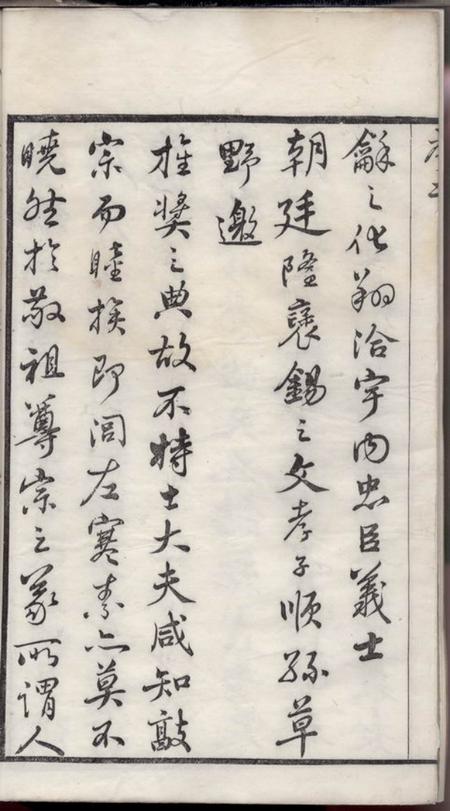 龢之化翔洽宇內忠臣義士
朝廷隆褒錫之文孝子順孫草
野邀
推獎之典故不特士大夫咸知敦
宗而睦族即閭左寒素亦莫不
曉然於敬祖尊宗之義所謂人